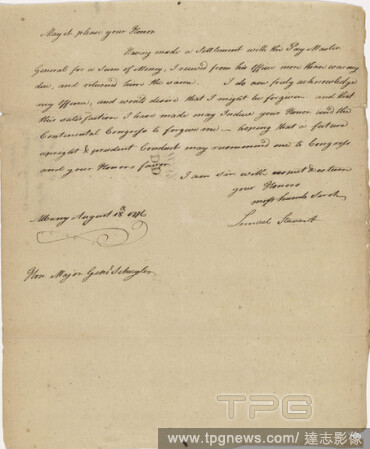 May it please your Honor
Having made a Settlement with the Pay Master
General for a Sum of Money, I received from his Office more than was my
due, and retained him the same. I do now truly acknowledge
my Offence, and would desire that I might be forgiven and that
this satisfaction I have made may Induce your Honor and the
Continental Congress to forgive me — hoping that a future
upright & prudent Conduct may recommend me to Congress
and your Honors favor
I am Sir with esteem
your Honors
most humble Servt
Samuel Stewart
Albany August 18th 1776
Hon. Major Genl Schuyler
TPG
www.tpgnews.com / 達志影像